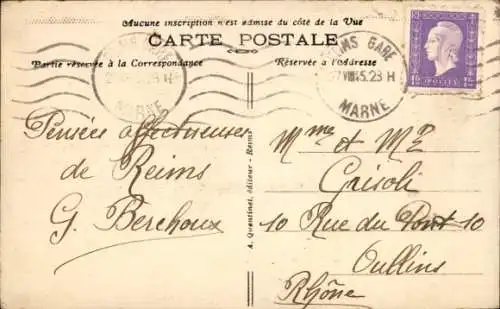 Aucune inscription n'est admise du côté de la Vue
CARTE POSTALE
Partie réservée à la Correspondance
Réservée à l'Adresse
MARNE
REIMS GARE
VIII 45.23 H
MARNE
POSTES
Pensées affectueuses
de Reims
G. Berchoux
A. Quentinet, éditeur - Reims
Mme et Mr
Crisoli
10 Rue du Pont 10
Oullins
Rhône